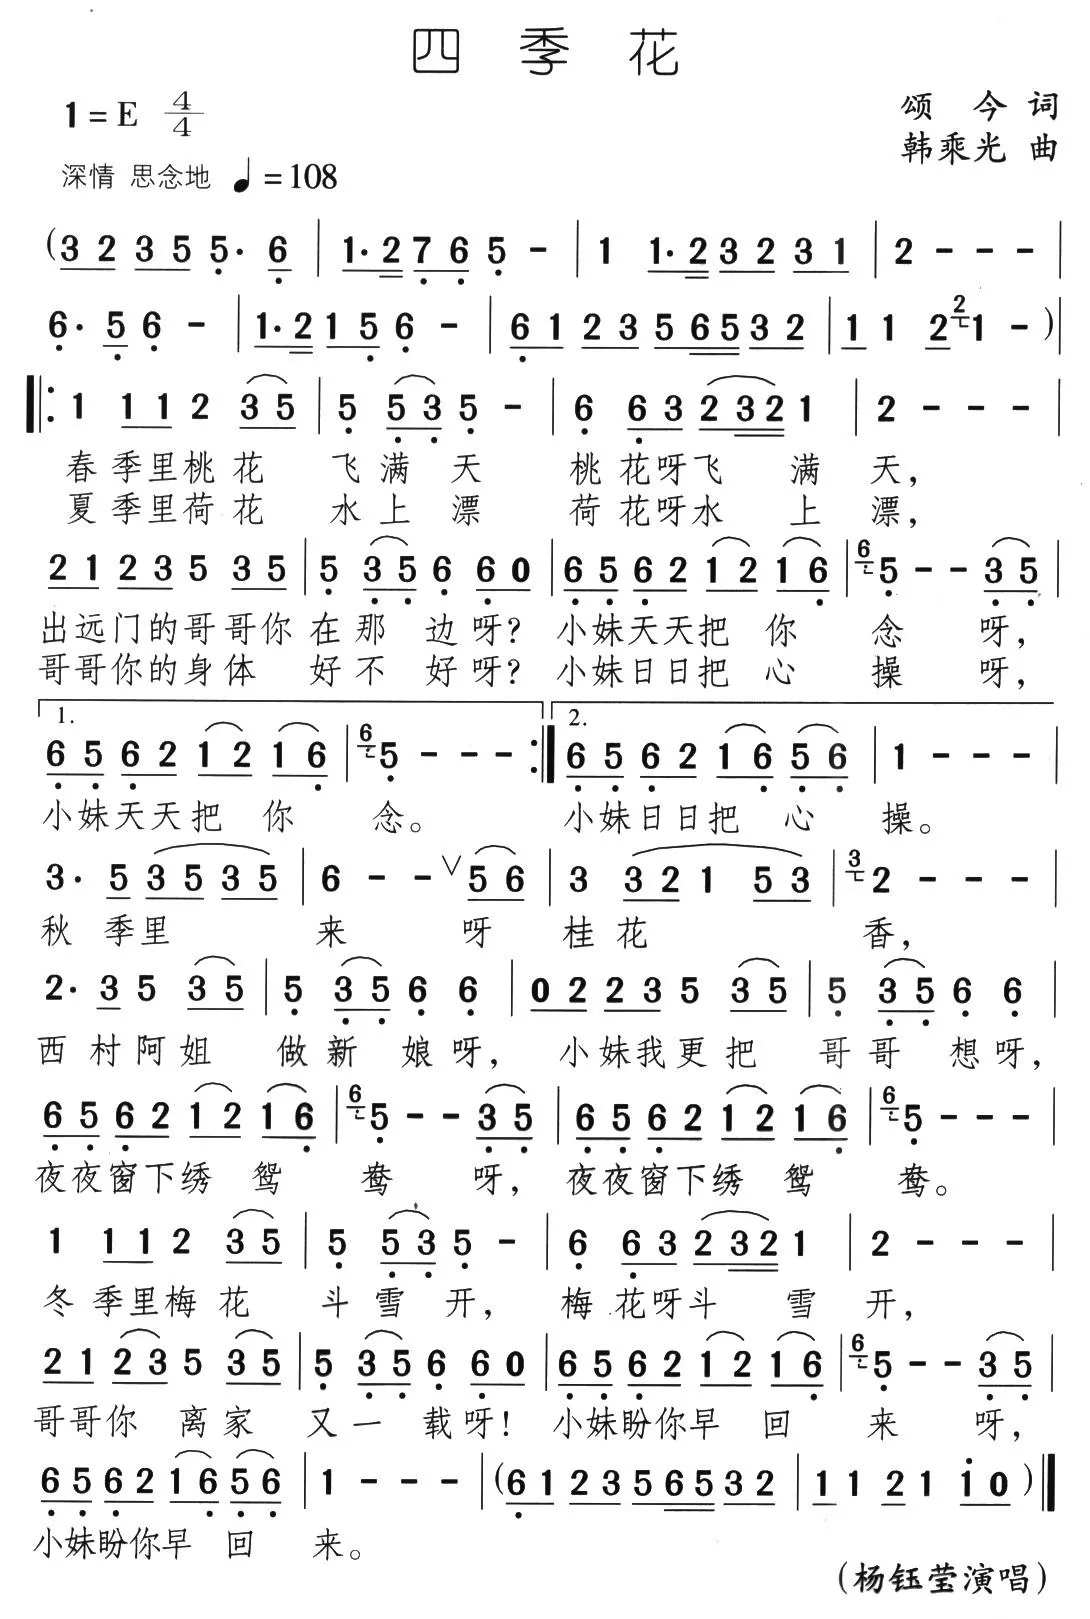 四季花
1=E 4/4
颂今词
韩乘光 曲
深情 思念地 ♩=108
(3 2 3 5 5· 6 | 1·2 7 6 5 - | 1 1·2 3 2 3 1 | 2 - - - |
6· 5 6 - | 1·2 1 5 6 - | 6 1 2 3 5 6 5 3 2 | 1 1 2 2 1 - )|
‖: 1 1 1 2 3 5 | 5 5 3 5 - | 6 6 3 2 3 2 1 | 2 - - - |
春季里桃花 飞满天 桃花呀飞满天,
夏季里荷花 水上漂 荷花呀水上漂,
2 1 2 3 5 3 5 | 5 3 5 6 6 0 | 6 5 6 2 1 2 1 6 | 6 5 - - 3 5 |
出远门的哥哥你在那边呀? 小妹天天把你念呀,
哥哥你的身体 好不好呀? 小妹日日把心操呀,
1. 2.
6 5 6 2 1 2 1 6 | 6 5 - - - :‖ 6 5 6 2 1 6 5 6 | 1 - - - |
小妹天天把你念。 小妹日日把心操。
3· 5 3 5 3 5 | 6 - - ∨ 5 6 | 3 3 2 1 5 3 | 3 2 - - - |
秋季里来呀桂花香,
2· 3 5 3 5 | 5 3 5 6 6 | 0 2 2 3 5 3 5 | 5 3 5 6 6 |
西村阿姐 做新娘呀, 小妹我更把哥哥想呀,
6 5 6 2 1 2 1 6 | 6 5 - - 3 5 | 6 5 6 2 1 2 1 6 | 6 5 - - - |
夜夜窗下绣鸳鸯呀, 夜夜窗下绣鸳鸯。
1 1 1 2 3 5 | 5 5 3 5 - | 6 6 3 2 3 2 1 | 2 - - - |
冬季里梅花 斗雪开, 梅花呀斗雪开,
2 1 2 3 5 3 5 | 5 3 5 6 6 0 | 6 5 6 2 1 2 1 6 | 6 5 - - 3 5 |
哥哥你离家又一载呀! 小妹盼你早回来呀,
6 5 6 2 1 6 5 6 | 1 - - - | (6 1 2 3 5 6 5 3 2 | 1 1 2 1 1 0 )‖
小妹盼你早回来。
(杨钰莹演唱)